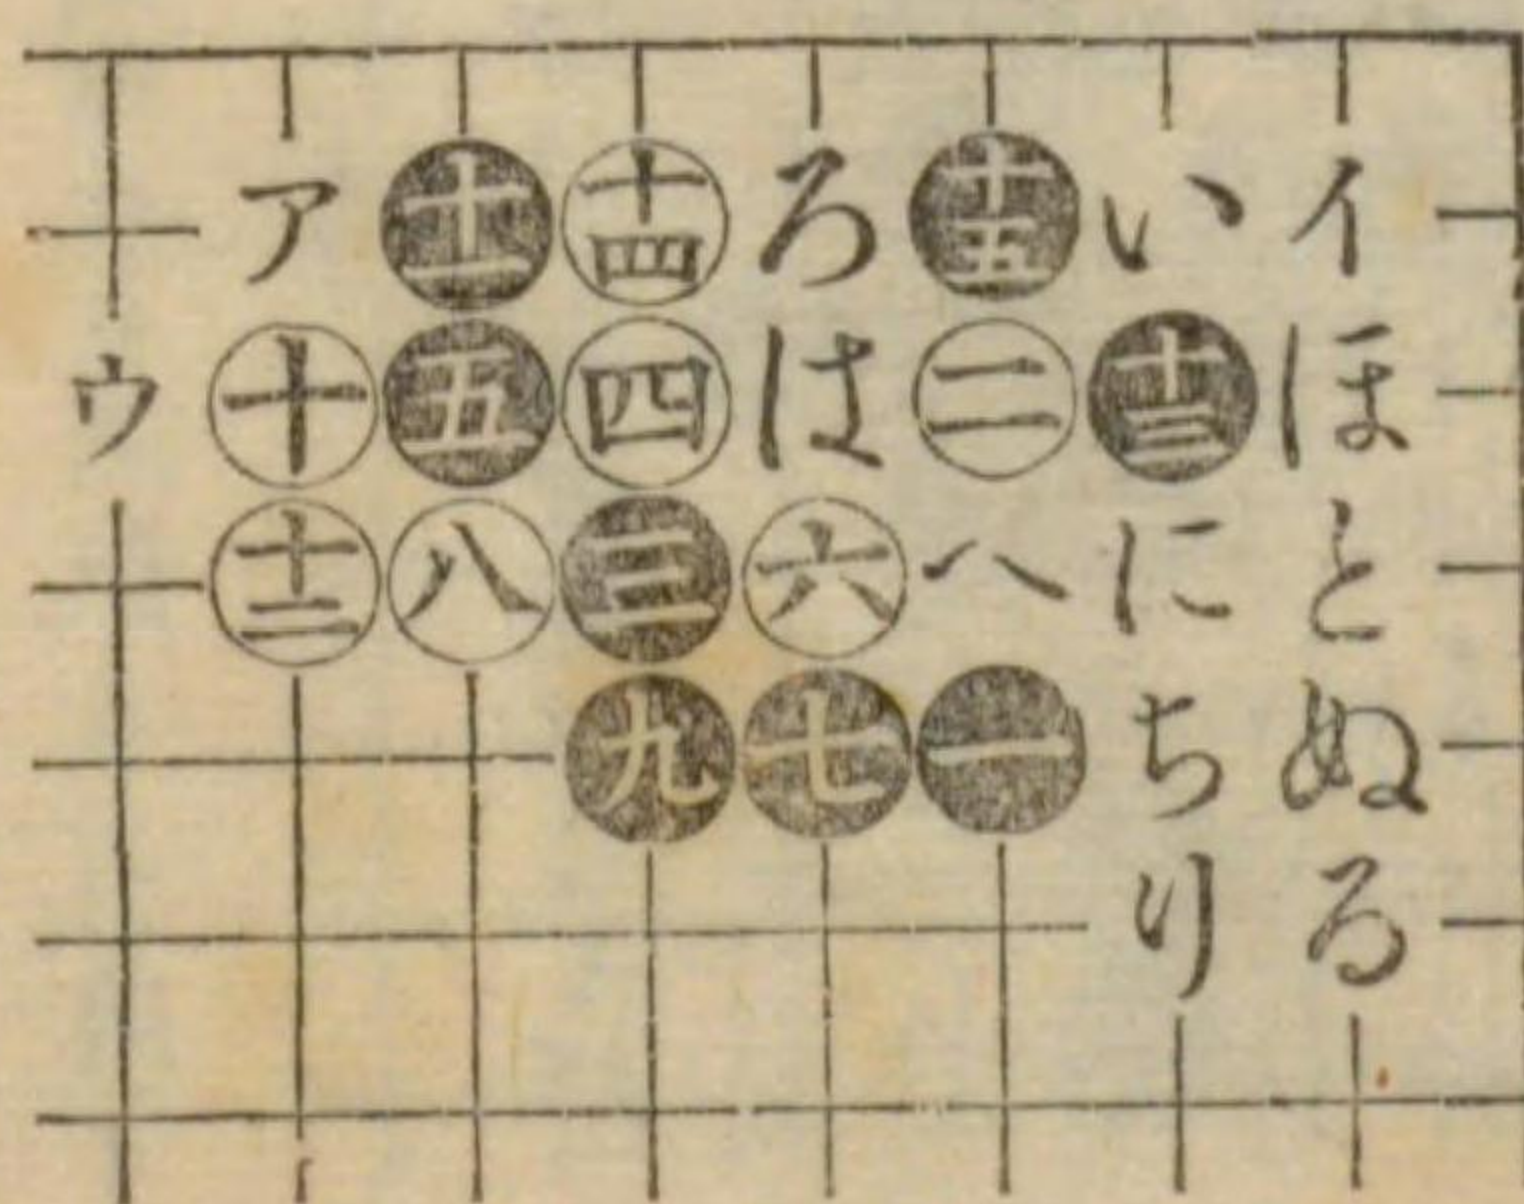 ア 十一 十四 ろ 十五 い イ
ウ 十 五 四 は 二 十三 ほ
十二 八 三 六 へ に と
九 七 一 ち ぬ
り る